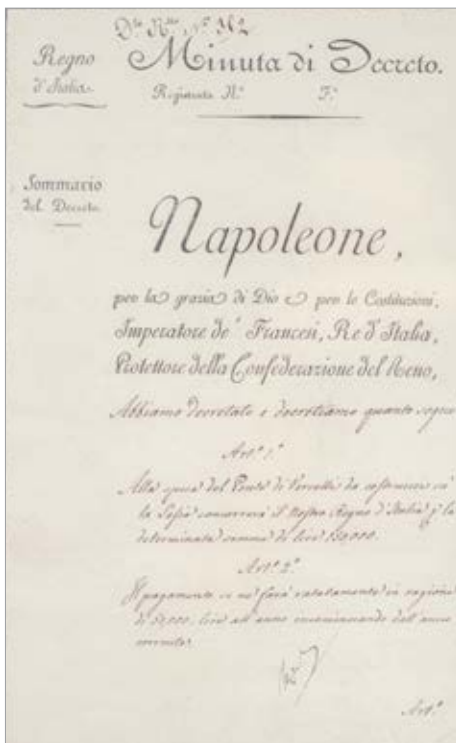 Minuta di Decreto.
Regno
d'Italia.
Registrata N.º F.º
Sommario
del Decreto.
Napoleone,
per la grazia di Dio e per le Costituzioni,
Imperatore de' Francesi, Re d'Italia,
Protettore della Confederazione del Reno,
Abbiamo decretato e decretiamo quanto segue
Art.º 1.º
Alla spesa del Ponte di Vercelli da costruirsi
la Sesia concorrerà il Nostro Regno d'Italia p la
determinata somma di lire 150,000.
Art.º 2.º
Il pagamento si farà ratatamente in ragione
di 50,000. lire all'anno incominciando dall'anno
Art.º